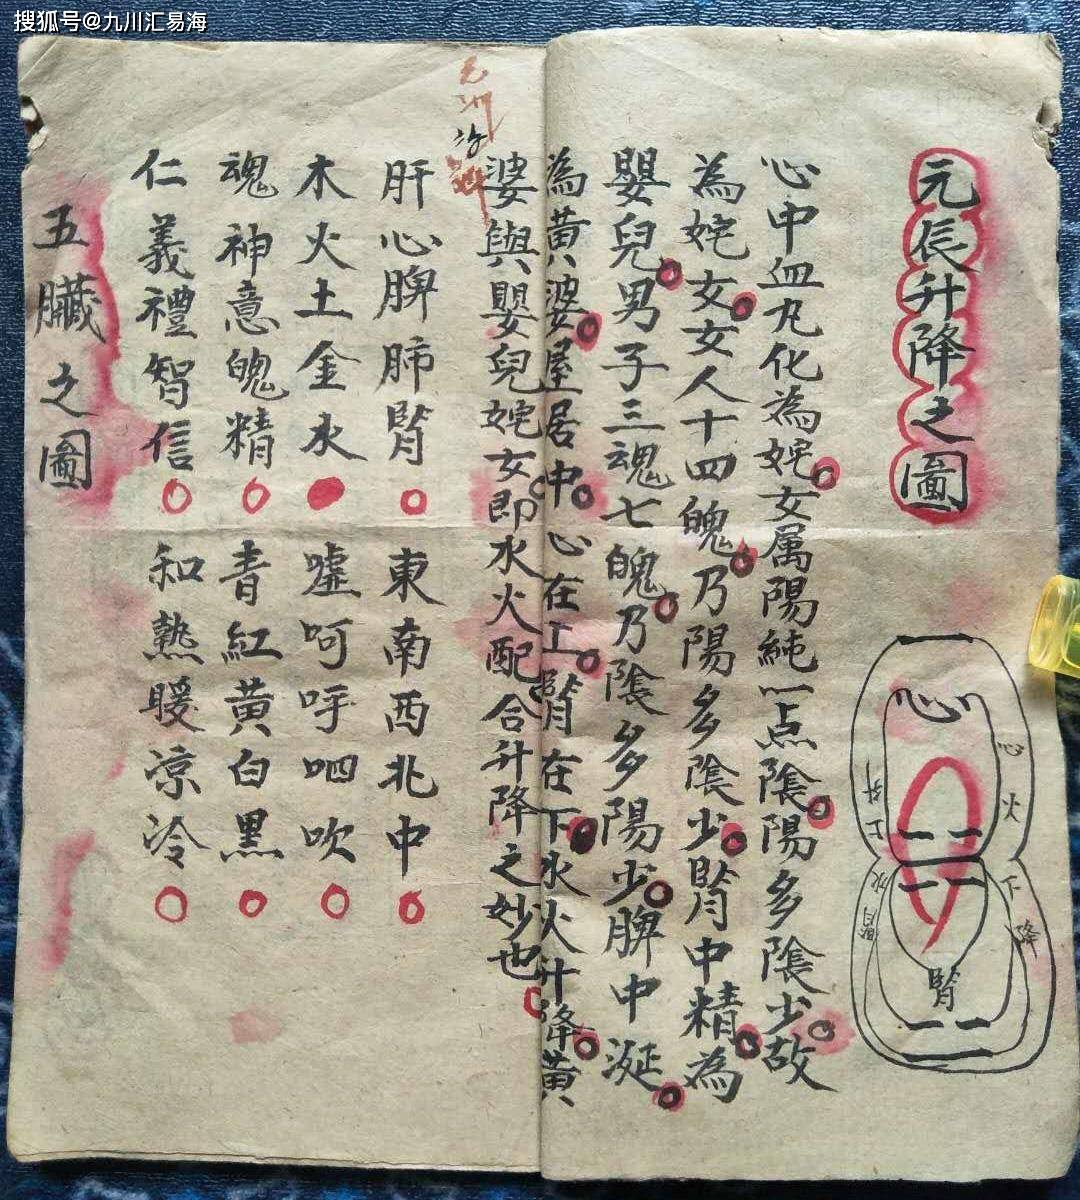 搜狐号@九川汇易海
元辰升降之圖
心
心火下降
腎水上升
腎
心中血九化為姹女属陽純一点陰陽多陰少故
為姹女女人十四魄乃陽多陰少腎中精為
嬰兒男子三魂七魄乃陰多陽少脾中涎
為黃婆屋居中心在上腎在下水火升降黃
婆與嬰兒姹女即水火配合升降之妙也
肝心脾肺腎 東南西北中
木火土金水 嘘呵呼呬吹
魂神意魄精 青紅黃白黑
仁義禮智信 和熱暖凉冷
五臟之圖